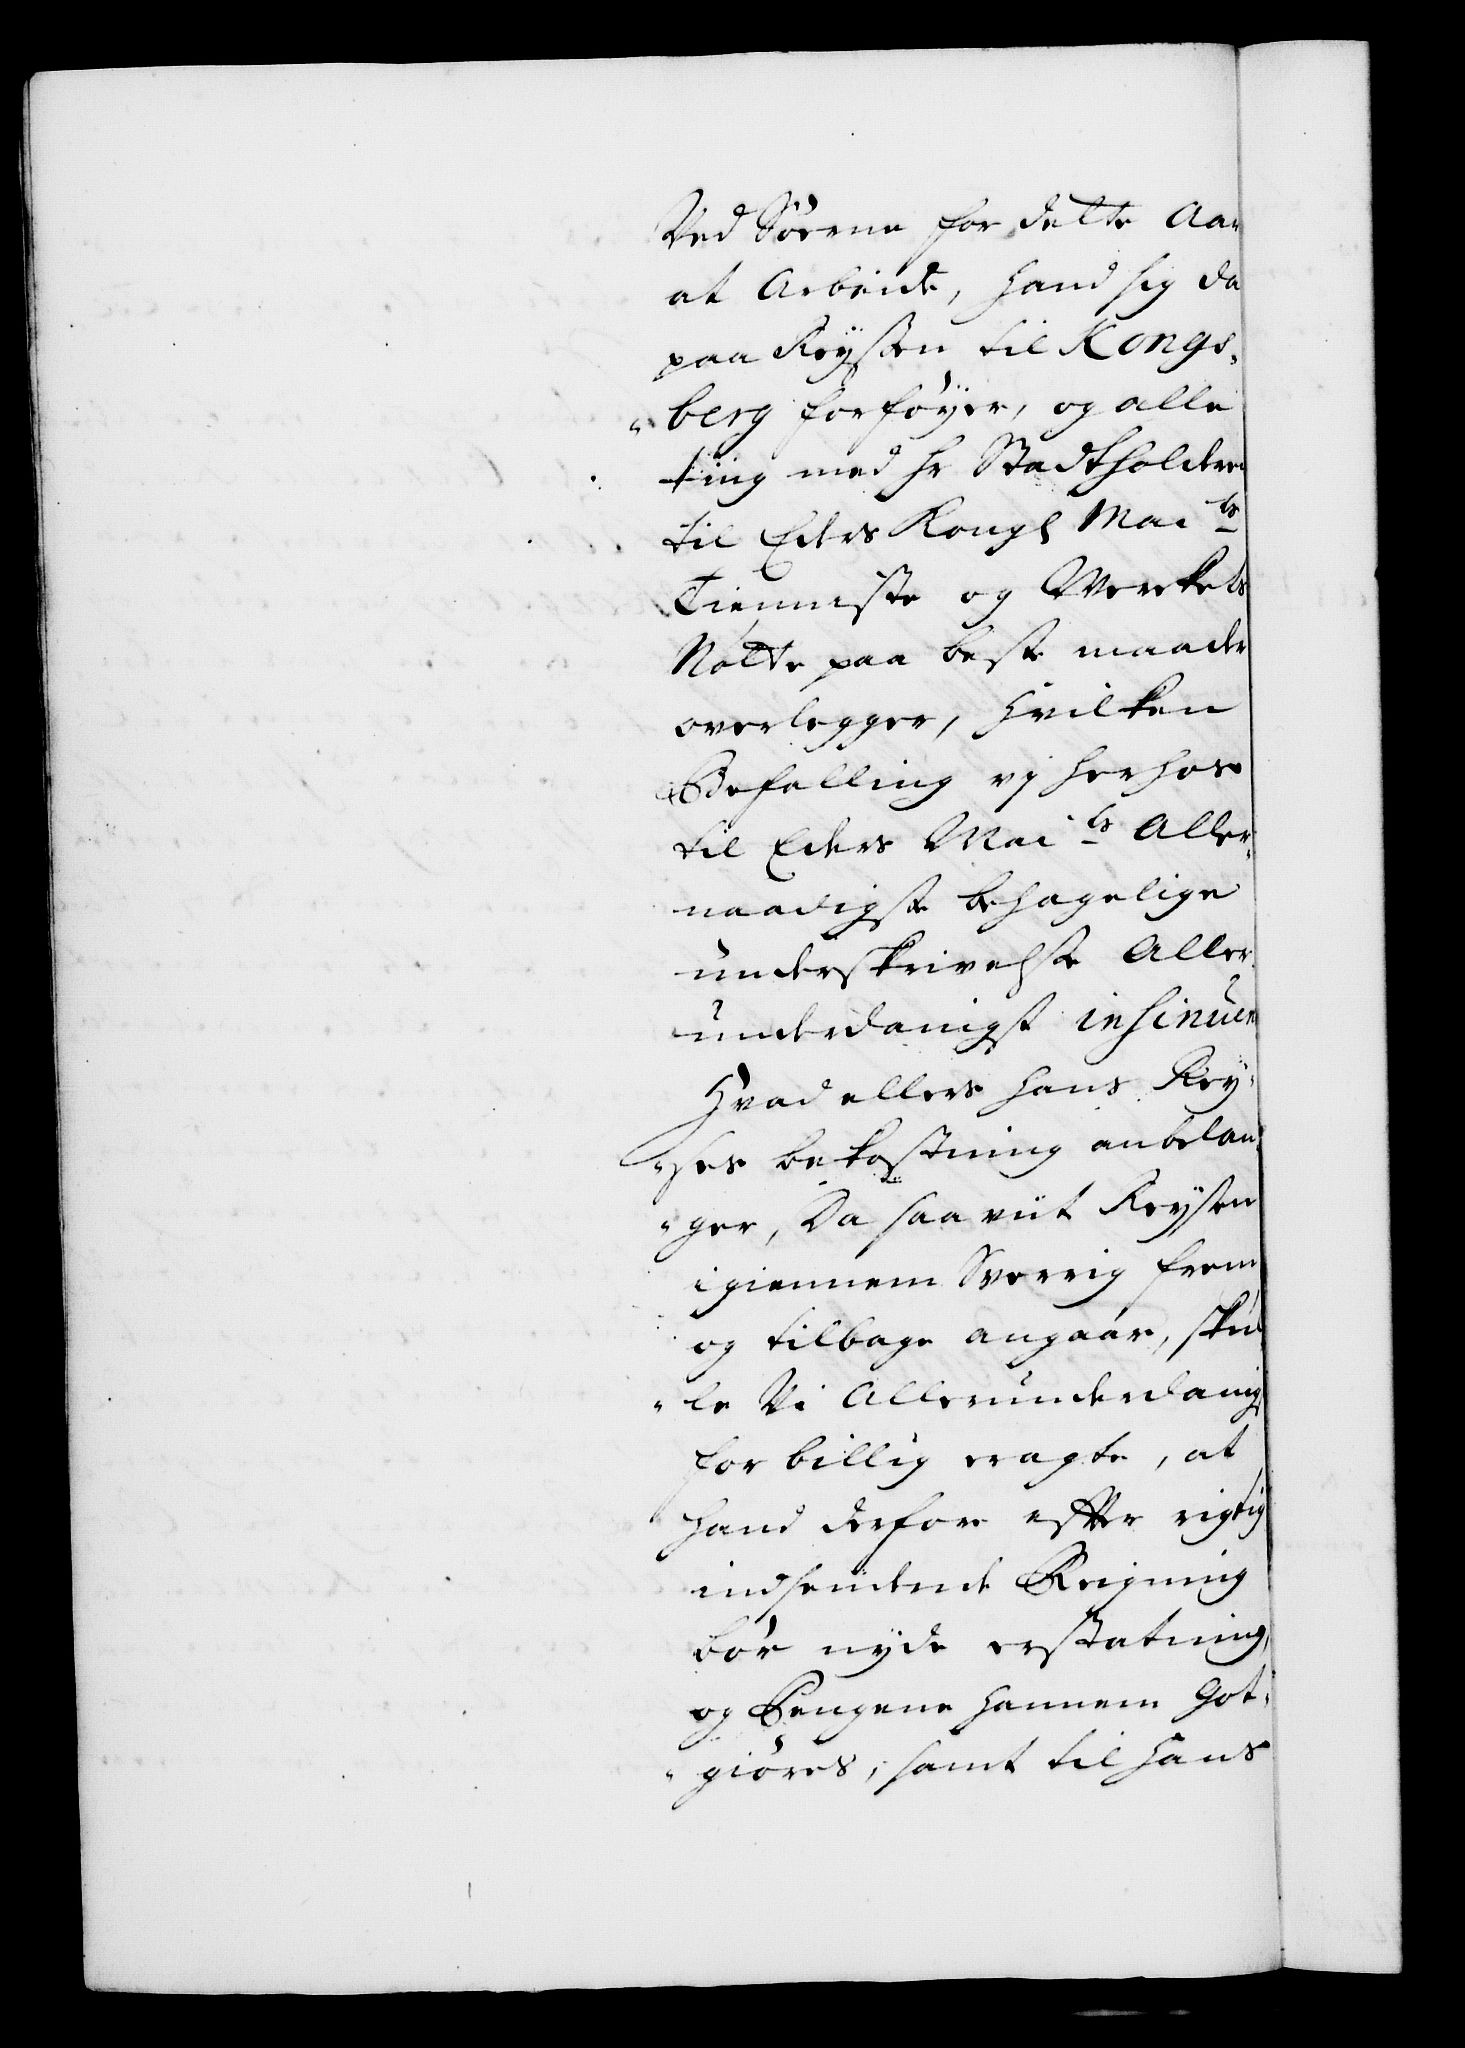 Ved Sørene for dette Aar
at Arbeide, hand sig da
paa Reysen til Kongs,
"berg forføyer, og alle
ting med hr Stadtholderen
til Eders Kongl Mai ts
Tienneste og Werkets
Nøtte paa beste maader
overlegger, hvilken
Befalling vj herhos
til Eders Mai ts Aller,
naadigste behagelige
underskrivelse Aller,
underdanigst insinuer
Hvad ellers hans Rey,
"ses bekostning anbelan,
"ger, Da saa viit Reysen
igiennem Sverrig frem
og tilbage angaar, skul
"le Vi Allerunderdanigst
for billig eragte, at
hand derfore effter rigtig
indsendende Reigning
bør nyde erstatning,
og Pengene hannem Got,
"giøres, samt til hans